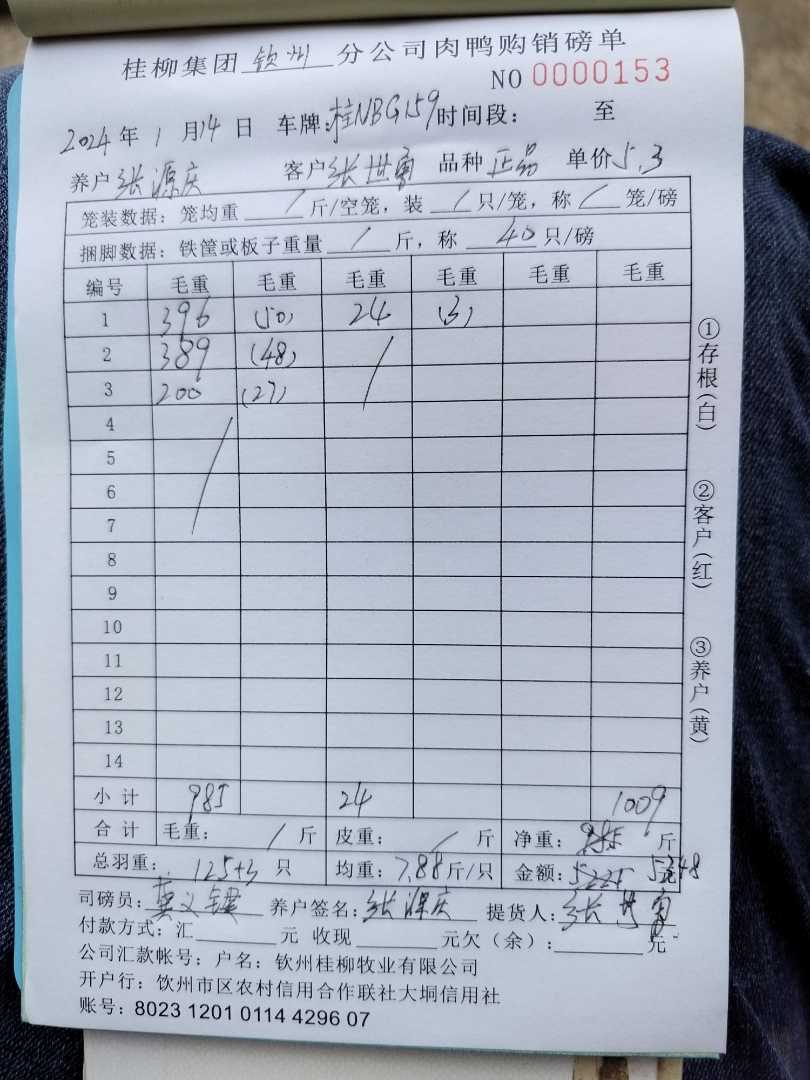 桂柳集团 钦州 分公司肉鸭购销磅单
NO 0000153
2024 年 1 月 14 日 车牌: 桂NBG159 时间段: 至
养户 张源庆 客户 张世勇 品种 正品 单价 5.3
笼装数据: 笼均重 / 斤/空笼, 装 / 只/笼, 称 / 笼/磅
捆脚数据: 铁筐或板子重量 / 斤, 称 40 只/磅
编号 毛重 毛重 毛重 毛重 毛重 毛重
1 396 (50) 24 (3)
2 389 (48) /
3 200 (27)
4 /
5
6
7
8
9
10
11
12
13
14
小计 985 24 1009
合计 毛重: / 斤 皮重: / 斤 净重: 985 斤
总羽重: 125+3 只 均重: 7.88斤/只 金额: 5225 5348
司磅员: 养户签名: 张源庆 提货人: 张世勇
付款方式: 汇 元 收现 元欠(余): 元
公司汇款帐号: 户名: 钦州桂柳牧业有限公司
开户行: 钦州市区农村信用合作联社大垌信用社
账号: 8023 1201 0114 4296 07
①存根(白)
②客户(红)
③养户(黄)